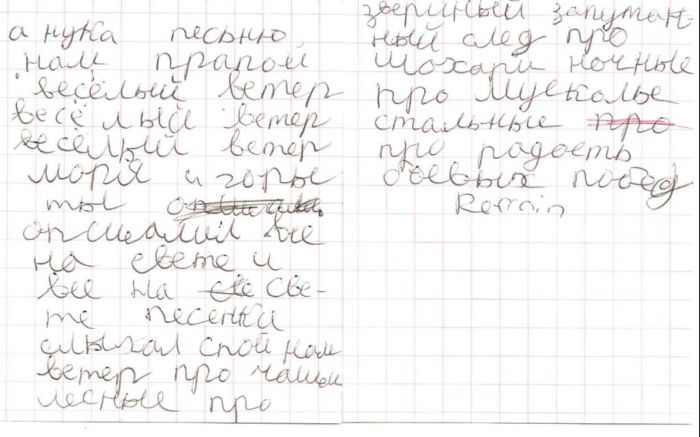 а нука песьню
нам прапой
весёлый ветер
весёлый ветер
весёлый ветер
моря и горы
ты
оршиалил все
на свете и
все на све-
те песенки
слыхал спой нам
ветер про чащи
лесные про
звериный запутан
ный след про
шохари ночные
про мусколье
стальные про
про радость
боевых побед